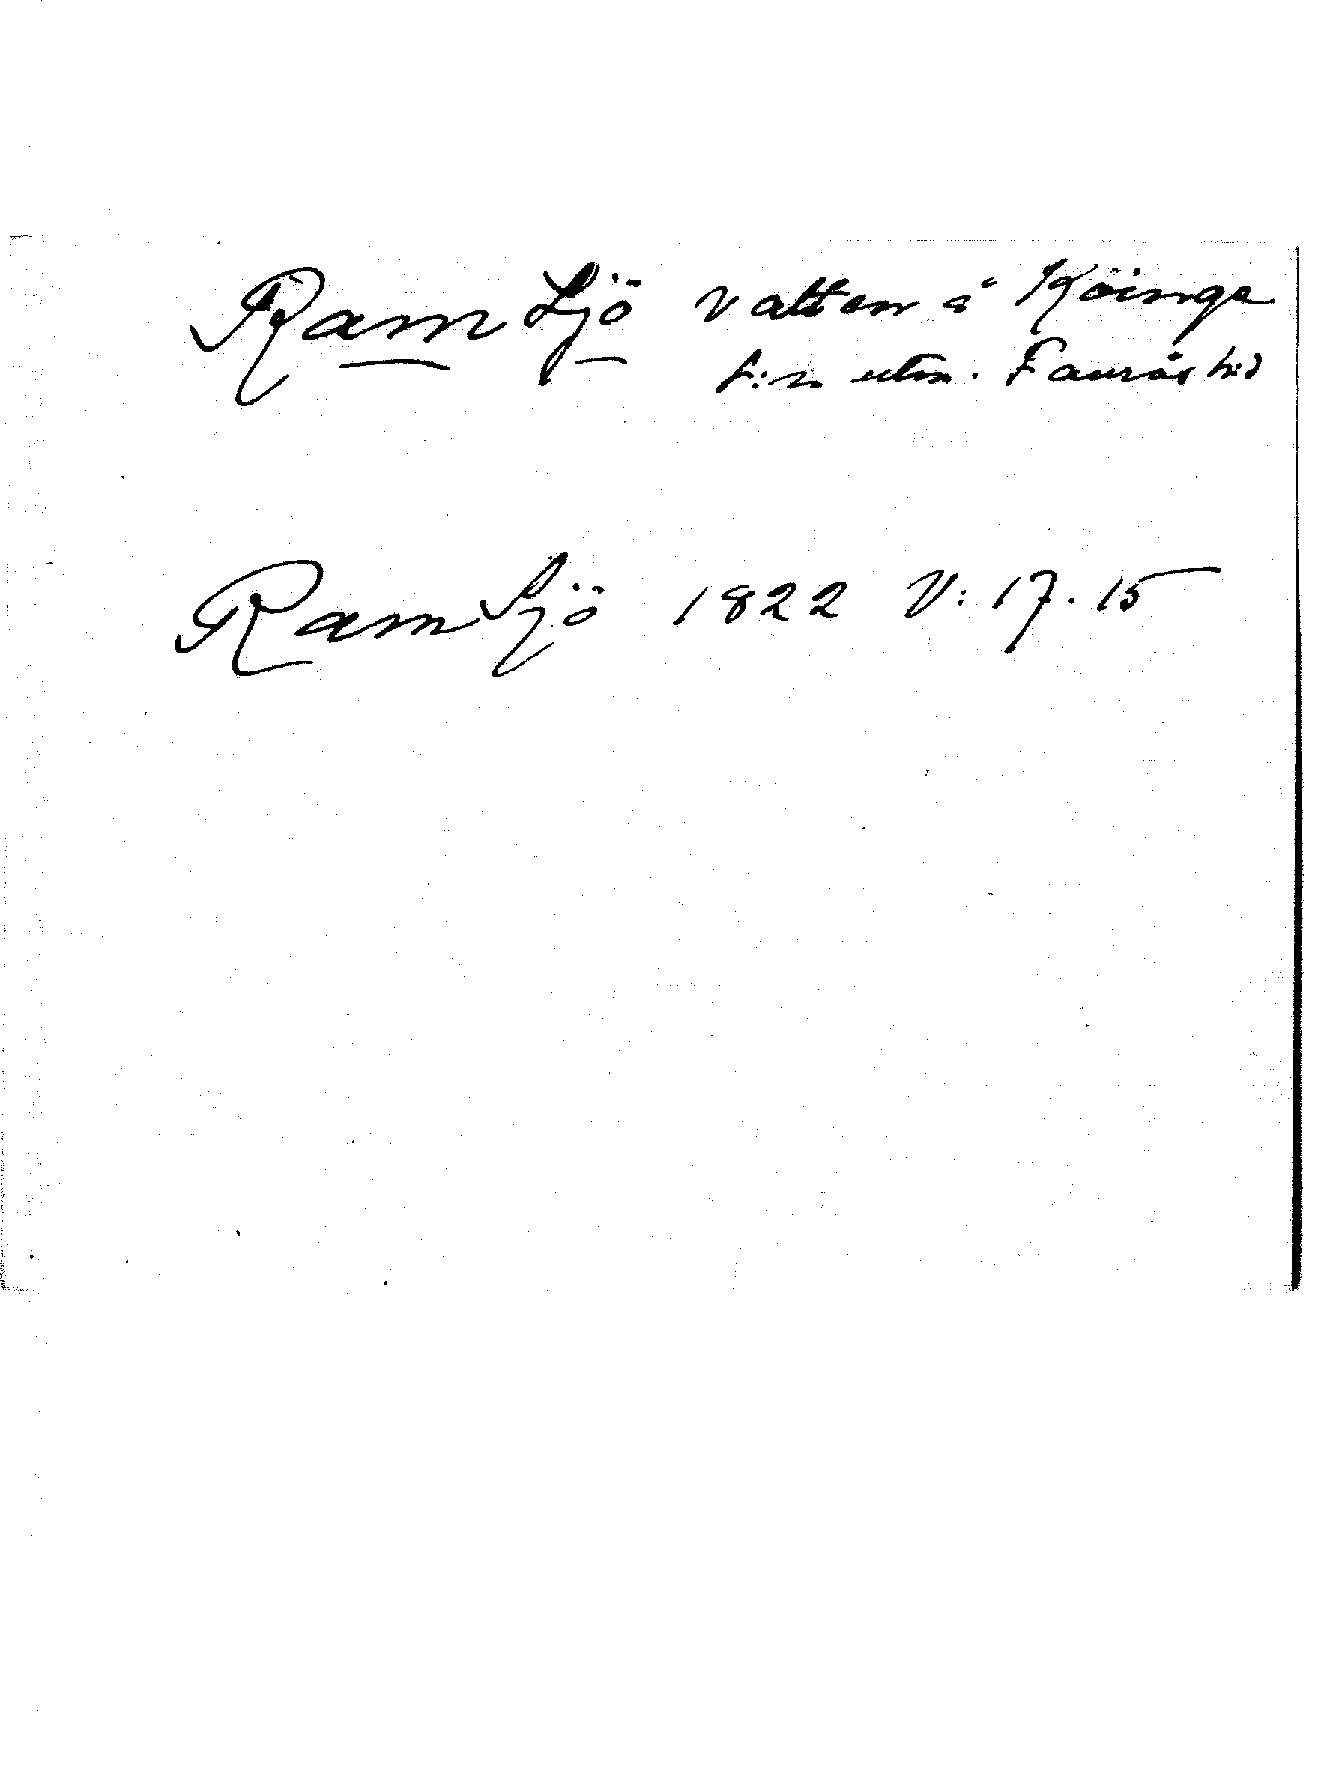 Ram Sjö vatten å Köinge
s:n utm. Faurås h:d
Ram Sjö 1822 V: 17. 15